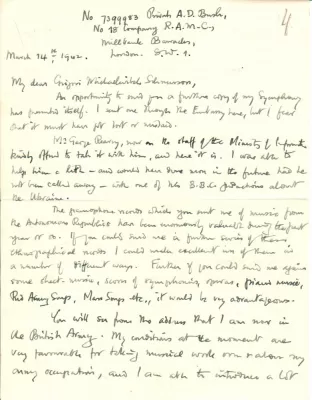 4
No 7399983 Private A.D. Bush,
No 18 Company R.A.M.C.,
Millbank Barracks,
London. S.W.1.
March 14th 1942.
My dear Grigori Schneerson,
An opportunity to send you a further copy of my Symphony
has presented itself. I sent one through the Embassy here, but I fear
that it must have got lost or mislaid.
Mr George Reavey, now on the staff of the Ministry of Information
kindly offered to take it with him, and here it is. I was able to
help him a little – and would have done more in the future had he
not been called away – with one of his B.B.C. productions about
the Ukraine.
The gramophone records which you sent me of music from
the Autonomous Republics have been enormously valuable during the past
year or so. If you could send me a further series of these
ethnographical records I could make excellent use of them in
a number of different ways. Further if you could send me again
some sheet-music, scores of symphonies, operas, piano music,
Red Army Songs, Mass Songs etc., it would be very advantageous.
You will see from the address that I am now in
the British Army. My conditions at the moment are
very favourable for taking musical work over & above my
army occupation, and I am able to introduce a lot